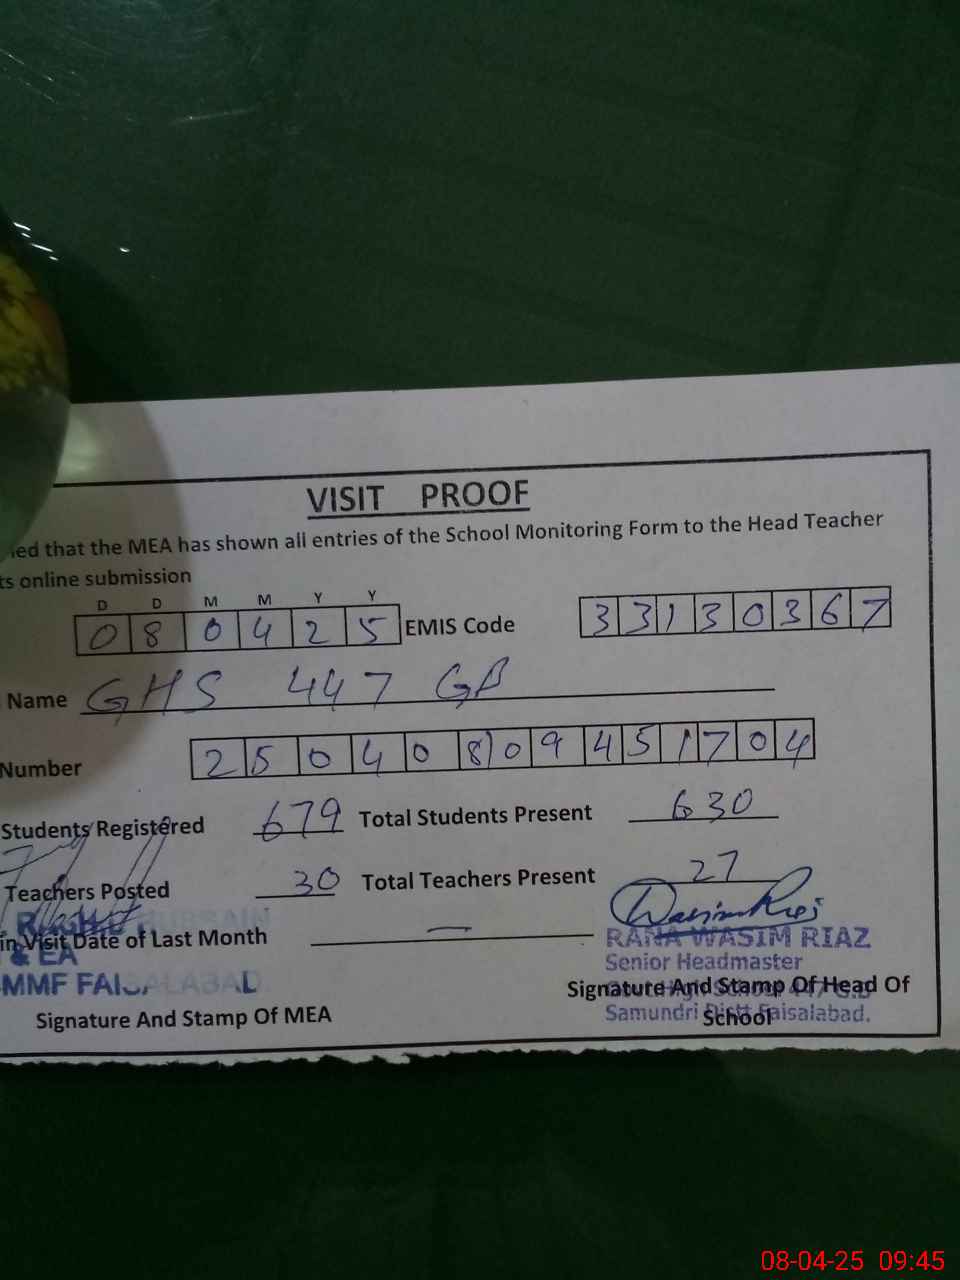 VISIT PROOF
that the MEA has shown all entries of the School Monitoring Form to the Head Teacher
online submission
D D M M Y Y
0 8 0 4 2 5 EMIS Code 3 3 1 3 0 3 6 7
Name GHS 447 GB
Number 2 5 0 4 0 8 0 9 4 5 1 7 0 4
Students Registered 679 Total Students Present 630
Teachers Posted 30 Total Teachers Present 27
in Visit Date of Last Month —
HUSSAIN
& EA
MMF FAISALABAD
Signature And Stamp Of MEA
RANA WASIM RIAZ
Senior Headmaster
Signature And Stamp Of Head Of
School
447
Samundri Distt Faisalabad.
08-04-25 09:45